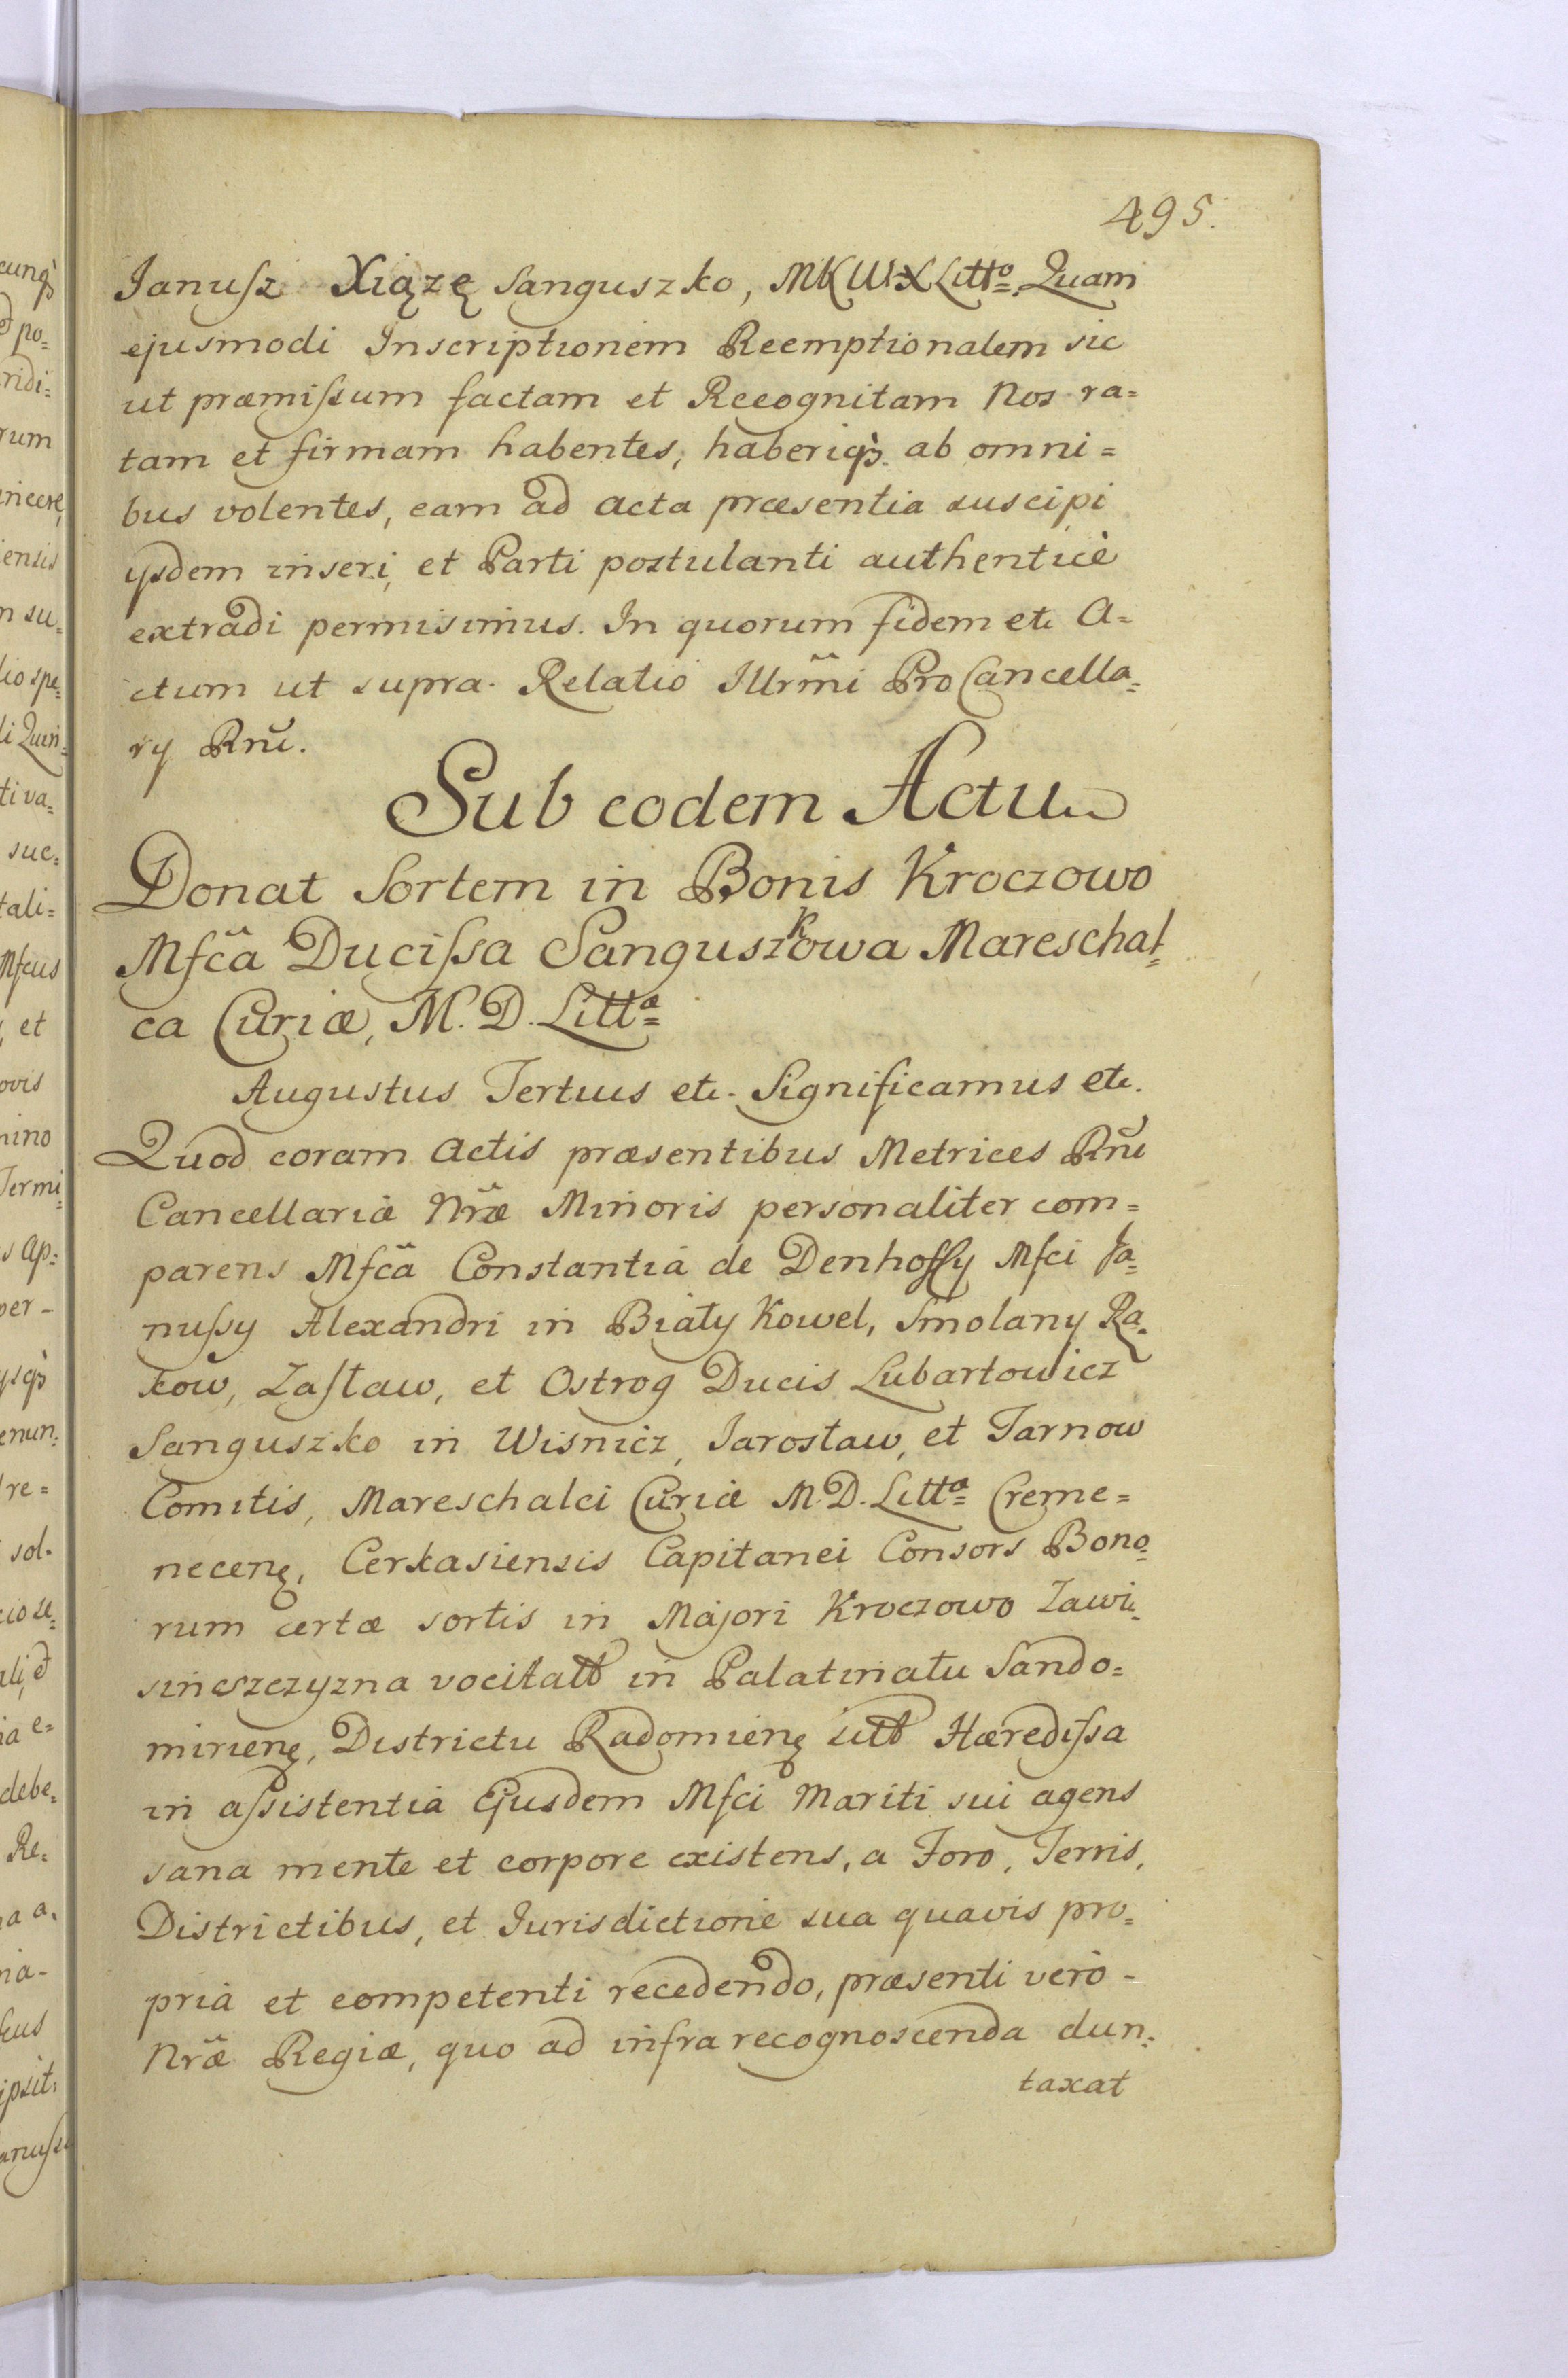 495.
Janusz Xiązę Sanguszko, MKWXLitt⁰ Quam
ejusmodi Inscriptionem Reemptionalem sic
ut præmissum factam et Recognitam Nos ra=
tam et firmam habentes, haberiq̀ ab omni=
bus volentes, eam ad acta præsentia suscipi
ijsdem inseri, et Parti postulanti authenticè
extradi permisimus. In quorum fidem etc. A=
ctum ut supra. Relatio Illrm̃i ProCancella=
ry Rnũ.
Sub eodem Actu
Donat Sortem in Bonis Kroczowo
Mfcã Ducissa Sanguszkowa Mareschal=
ca Curiæ, M. D. Littæ
Augustus Tertius etc. Significamus etc.
Quod coram Actis præsentibus Metrices Rnũ
Cancellariæ Nræ̃ Minoris personaliter com=
parens Mfcã Constantia de Denhoffy Mfci Ja=
nussy Alexandri in Biały Kowel, Smolany Ra=
kow, Zasław, et Ostrog Ducis Lubartowicz
Sanguszko in Wisnicz, Jarosław, et Tarnow
Comitis, Mareschalci Curiæ M.D. Littæ Creme=
necenę, Cerkasiensis Capitanei Consors Bono=
rum certæ sortis in Majori Kroczowo Zawi=
sinszczyzna vocitatt in Palatinatu Sando=
mirienę, Districtu Radomienę sitt Hæredissa
in assistentia Ejusdem Mfci Mariti sui agens
sana mente et corpore existens, a Foro, Terris,
Districtibus, et Jurisdictione sua quavis pro=
pria et competenti recedendo, præsenti verò -
Nræ̃ Regiæ, quo ad infra recognoscenda dun=
taxat